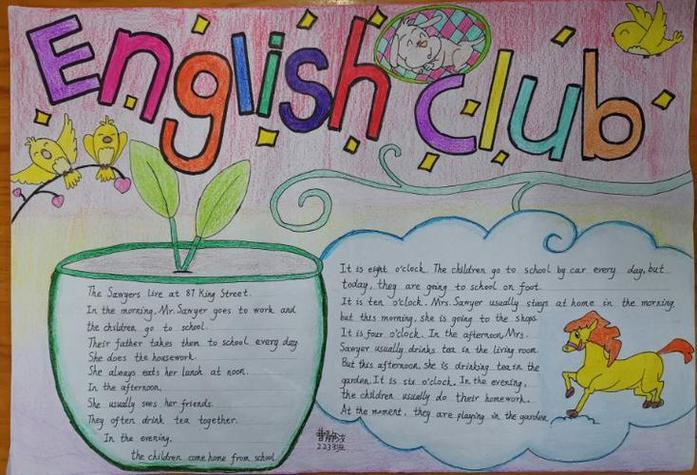 English Club
The Sawyers live at 87 King Street.
In the morning, Mr. Sawyer goes to work and
the children go to school.
Their father takes them to school every day
She does the housework.
She always eats her lunch at noon.
In the afternoon,
She usually sees her friends.
They often drink tea together.
In the evening,
the children come home from school
It is eight o'clock. The children go to school by car every day, but
today, they are going to school on foot
It is ten o'clock. Mrs. Sawyer usually stays at home in the morning
but this morning, she is going to the shops
It is four o'clock. In the afternoon, Mrs.
Sawyer usually drinks tea in the living room.
But this afternoon, she is drinking tea in the
garden. It is six o'clock. In the evening,
the children usually do their homework.
At the moment, they are playing in the garden
223班